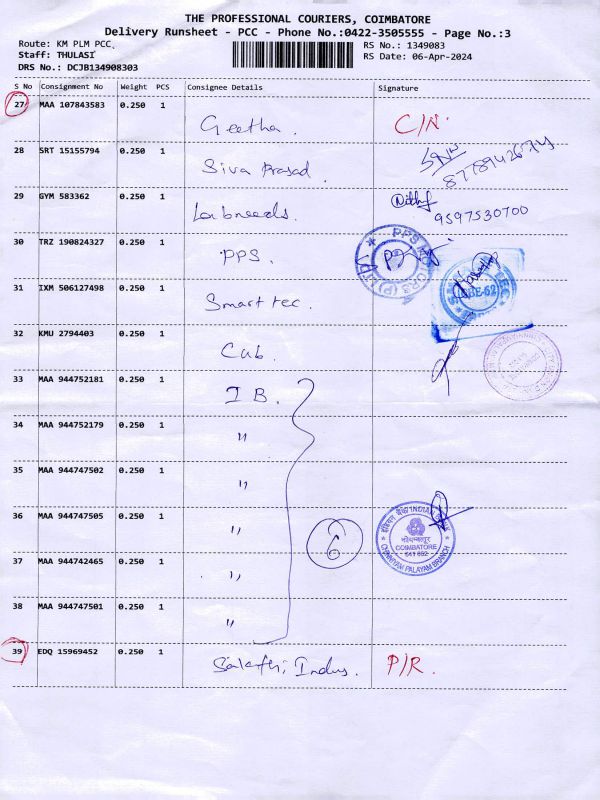 THE PROFESSIONAL COURIERS, COIMBATORE
Delivery Runsheet - PCC - Phone No.:0422-3505555 - Page No.:3
Route: KM PLM PCC, RS No.: 1349083
Staff: THULASI RS Date: 06-Apr-2024
DRS No.: DCJB134908303
S No Consignment No Weight PCS Consignee Details Signature
27 MAA 107843583 0.250 1
Geetha. C/N.
28 SRT 15155794 0.250 1
Siva Prasad. 8778942674
29 GYM 583362 0.250 1
Labneeds. 9597530700
30 TRZ 190824327 0.250 1
PPS. PPS MOTORS (P) LTD
31 IXM 506127498 0.250 1
Smart tec.
32 KMU 2794403 0.250 1
Cub.
33 MAA 944752181 0.250 1
I B.
34 MAA 944752179 0.250 1
"
35 MAA 944747502 0.250 1
"
36 MAA 944747505 0.250 1
"
6
इंडियन बैंक INDIAN BANK
कोयम्बत्तूर
COIMBATORE
641 652
CHINNIYAM PALAYAM BRANCH
37 MAA 944742465 0.250 1
"
38 MAA 944747501 0.250 1
"
39 EDQ 15969452 0.250 1
Sakthi Indus. P/R.